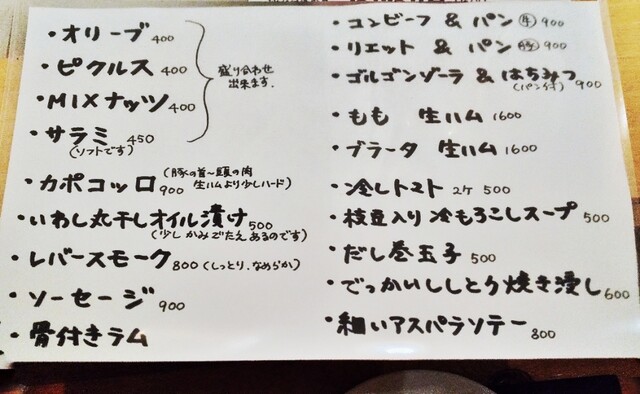 ・オリーブ 400
・ピクルス 400
・MIXナッツ 400
・サラミ 450
(ソフトです)
盛り合わせ
出来ます。
・カポコッロ 900 (豚の首〜頭の肉
生ハムより少しハード)
・いわし丸干しオイル漬け 500
(少しかみごたえあるのです)
・レバースモーク 800 (しっとり、なめらか)
・ソーセージ 900
・骨付きラム
・コンビーフ & パン 牛 900
・リエット & パン 豚 900
・ゴルゴンゾーラ & はちみつ 900
(パン付)
・もも 生ハム 1600
・ブラータ 生ハム 1600
・冷しトマト 2ケ 500
・枝豆入り 冷もろこしスープ 500
・だし巻玉子 500
・でっかいししとう焼き浸し 600
・細いアスパラソテー 800